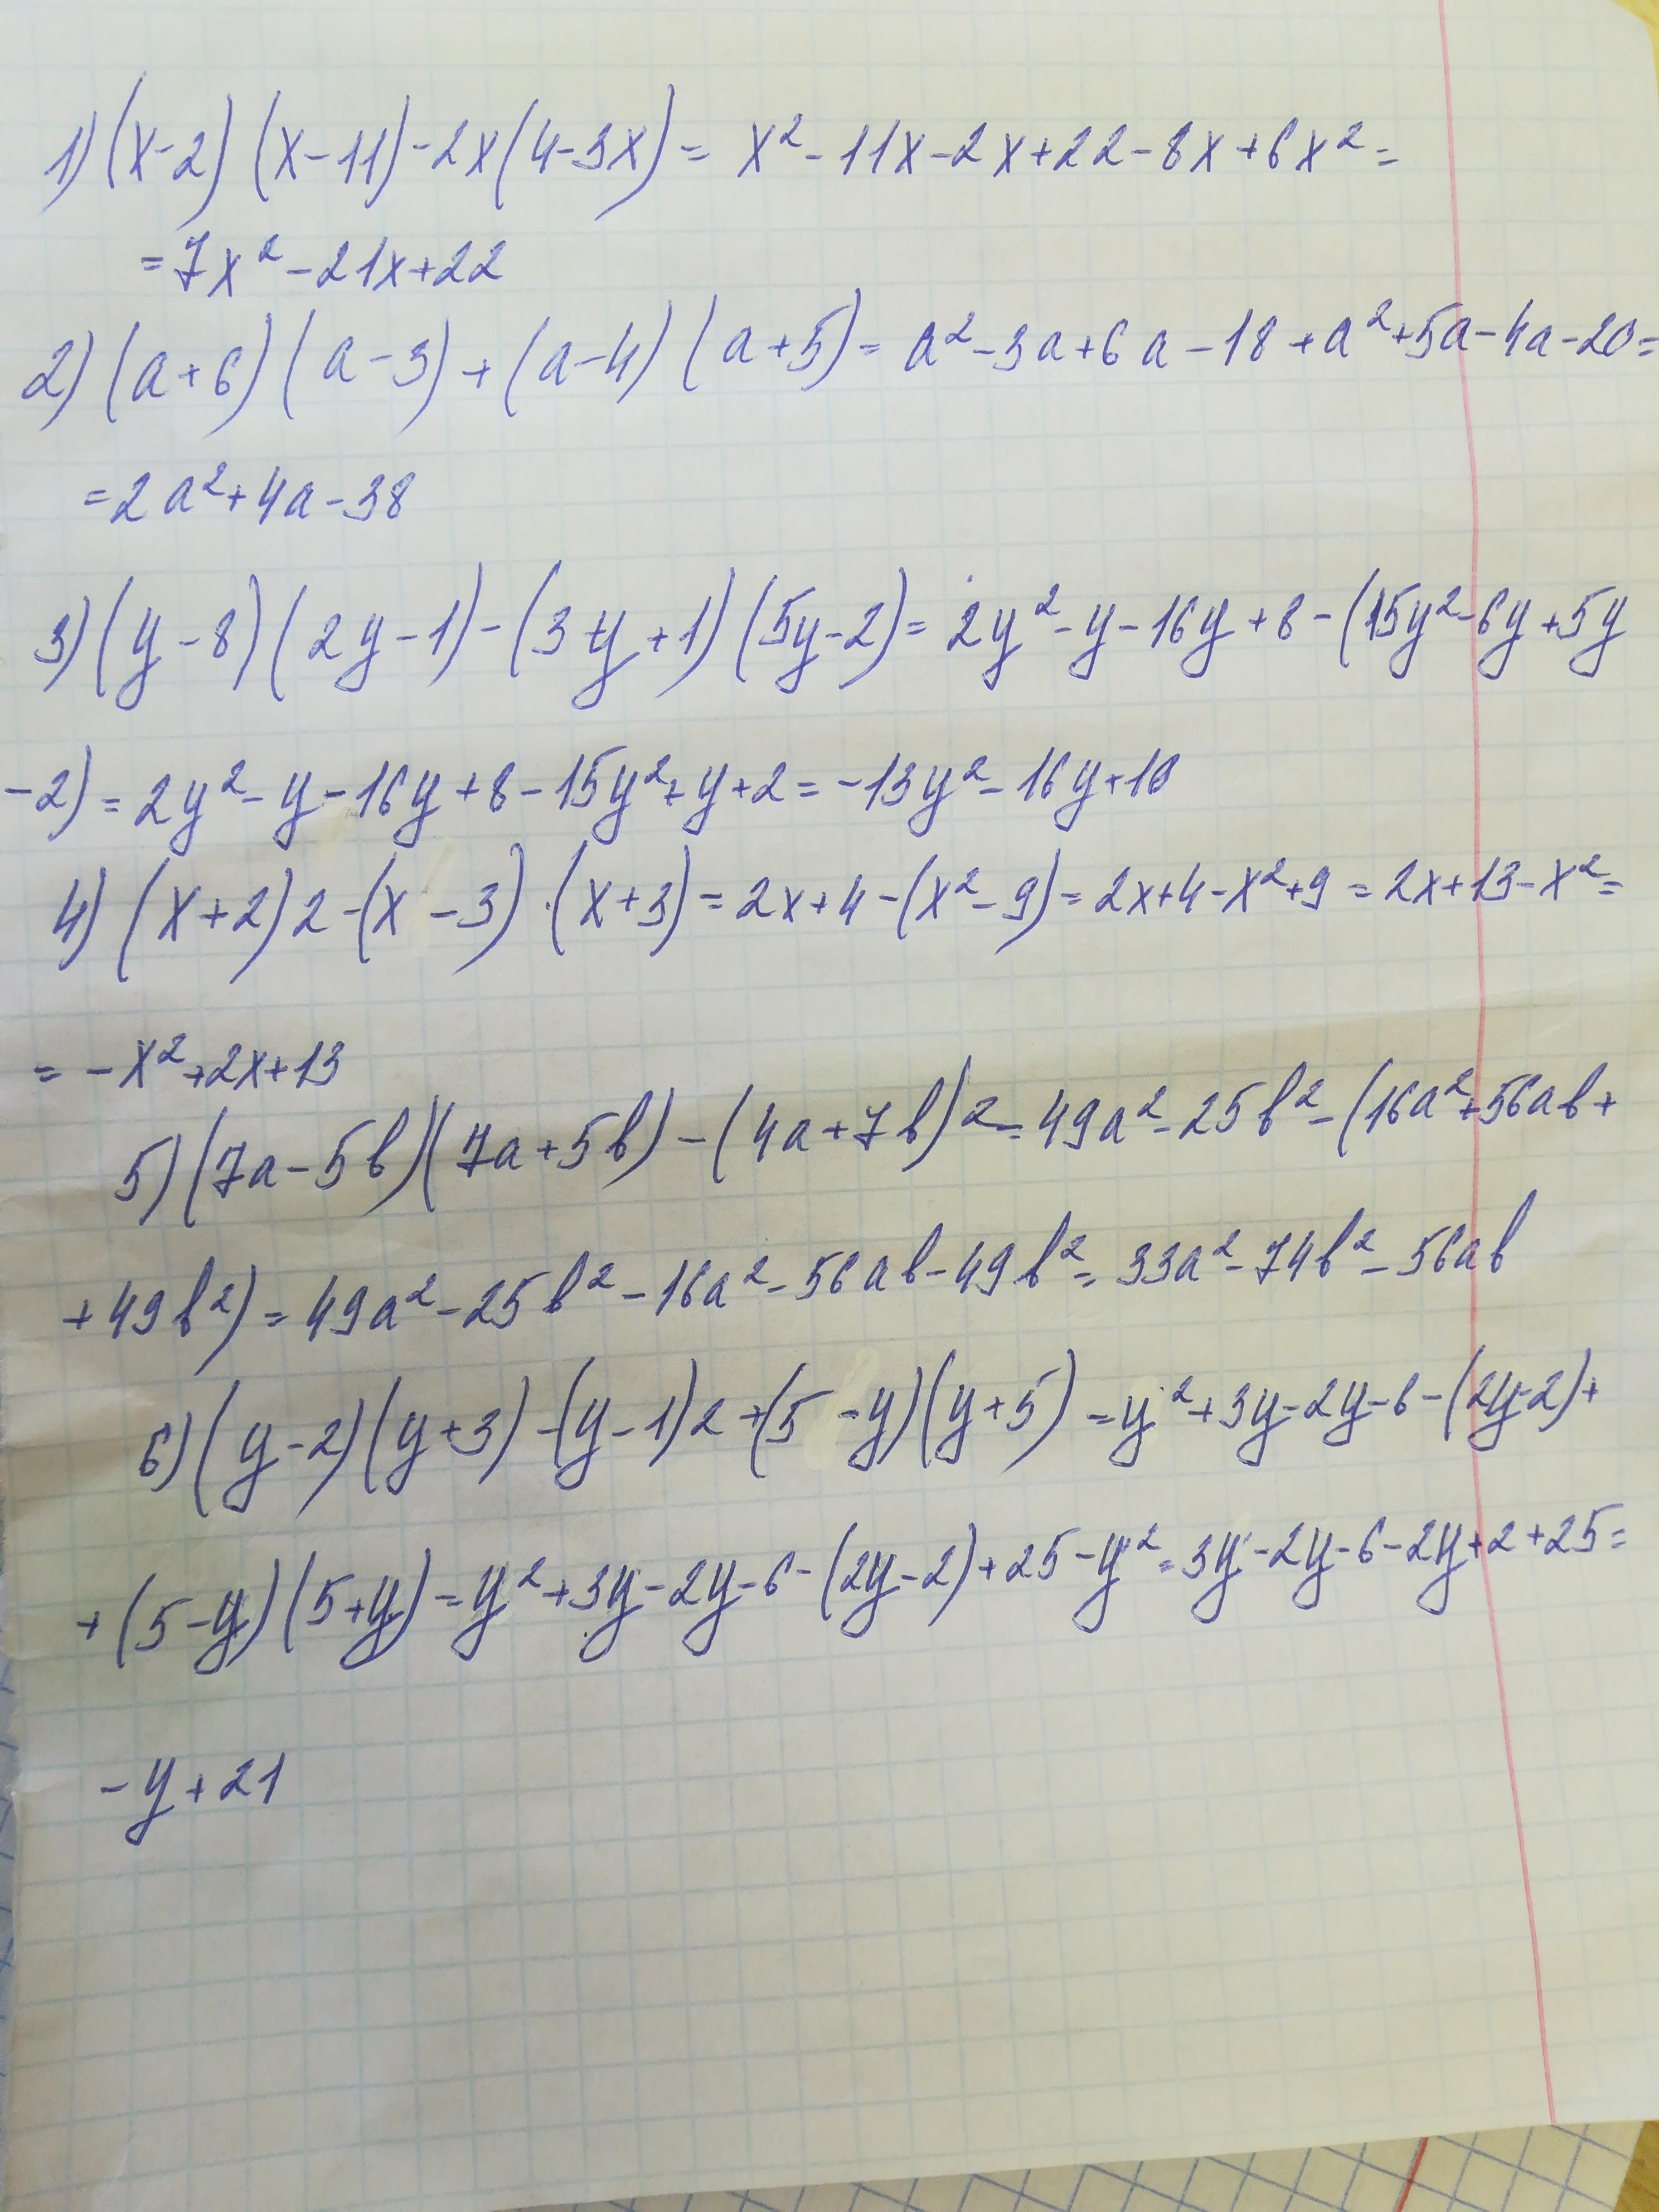 1) (x-2) (x-11)-2x(4-3x)= x²-11x-2x+22-8x+6x²=
=7x²-21x+22
2) (a+6)(a-3)+(a-4)(a+5)= a²-3a+6a-18+a²+5a-4a-20=
=2a²+4a-38
3) (y-8)(2y-1)-(3y+1)(5y-2)= 2y²-y-16y+8-(15y²-6y+5y
-2)=2y²-y-16y+8-15y²+y+2=-13y²-16y+10
4) (x+2)2-(x-3)·(x+3)=2x+4-(x²-9)=2x+4-x²+9=2x+13-x²=
=-x²+2x+13
5) (7a-5b)(7a+5b)-(4a+7b)²=49a²-25b²-(16a²+56ab+
+49b²)=49a²-25b²-16a²-56ab-49b²=33a²-74b²-56ab
6) (y-2)(y+3)-(y-1)2+(5-y)(y+5)=y²+3y-2y-6-(2y-2)+
+(5-y)(5+y)=y²+3y-2y-6-(2y-2)+25-y²=3y-2y-6-2y+2+25=
-y+21